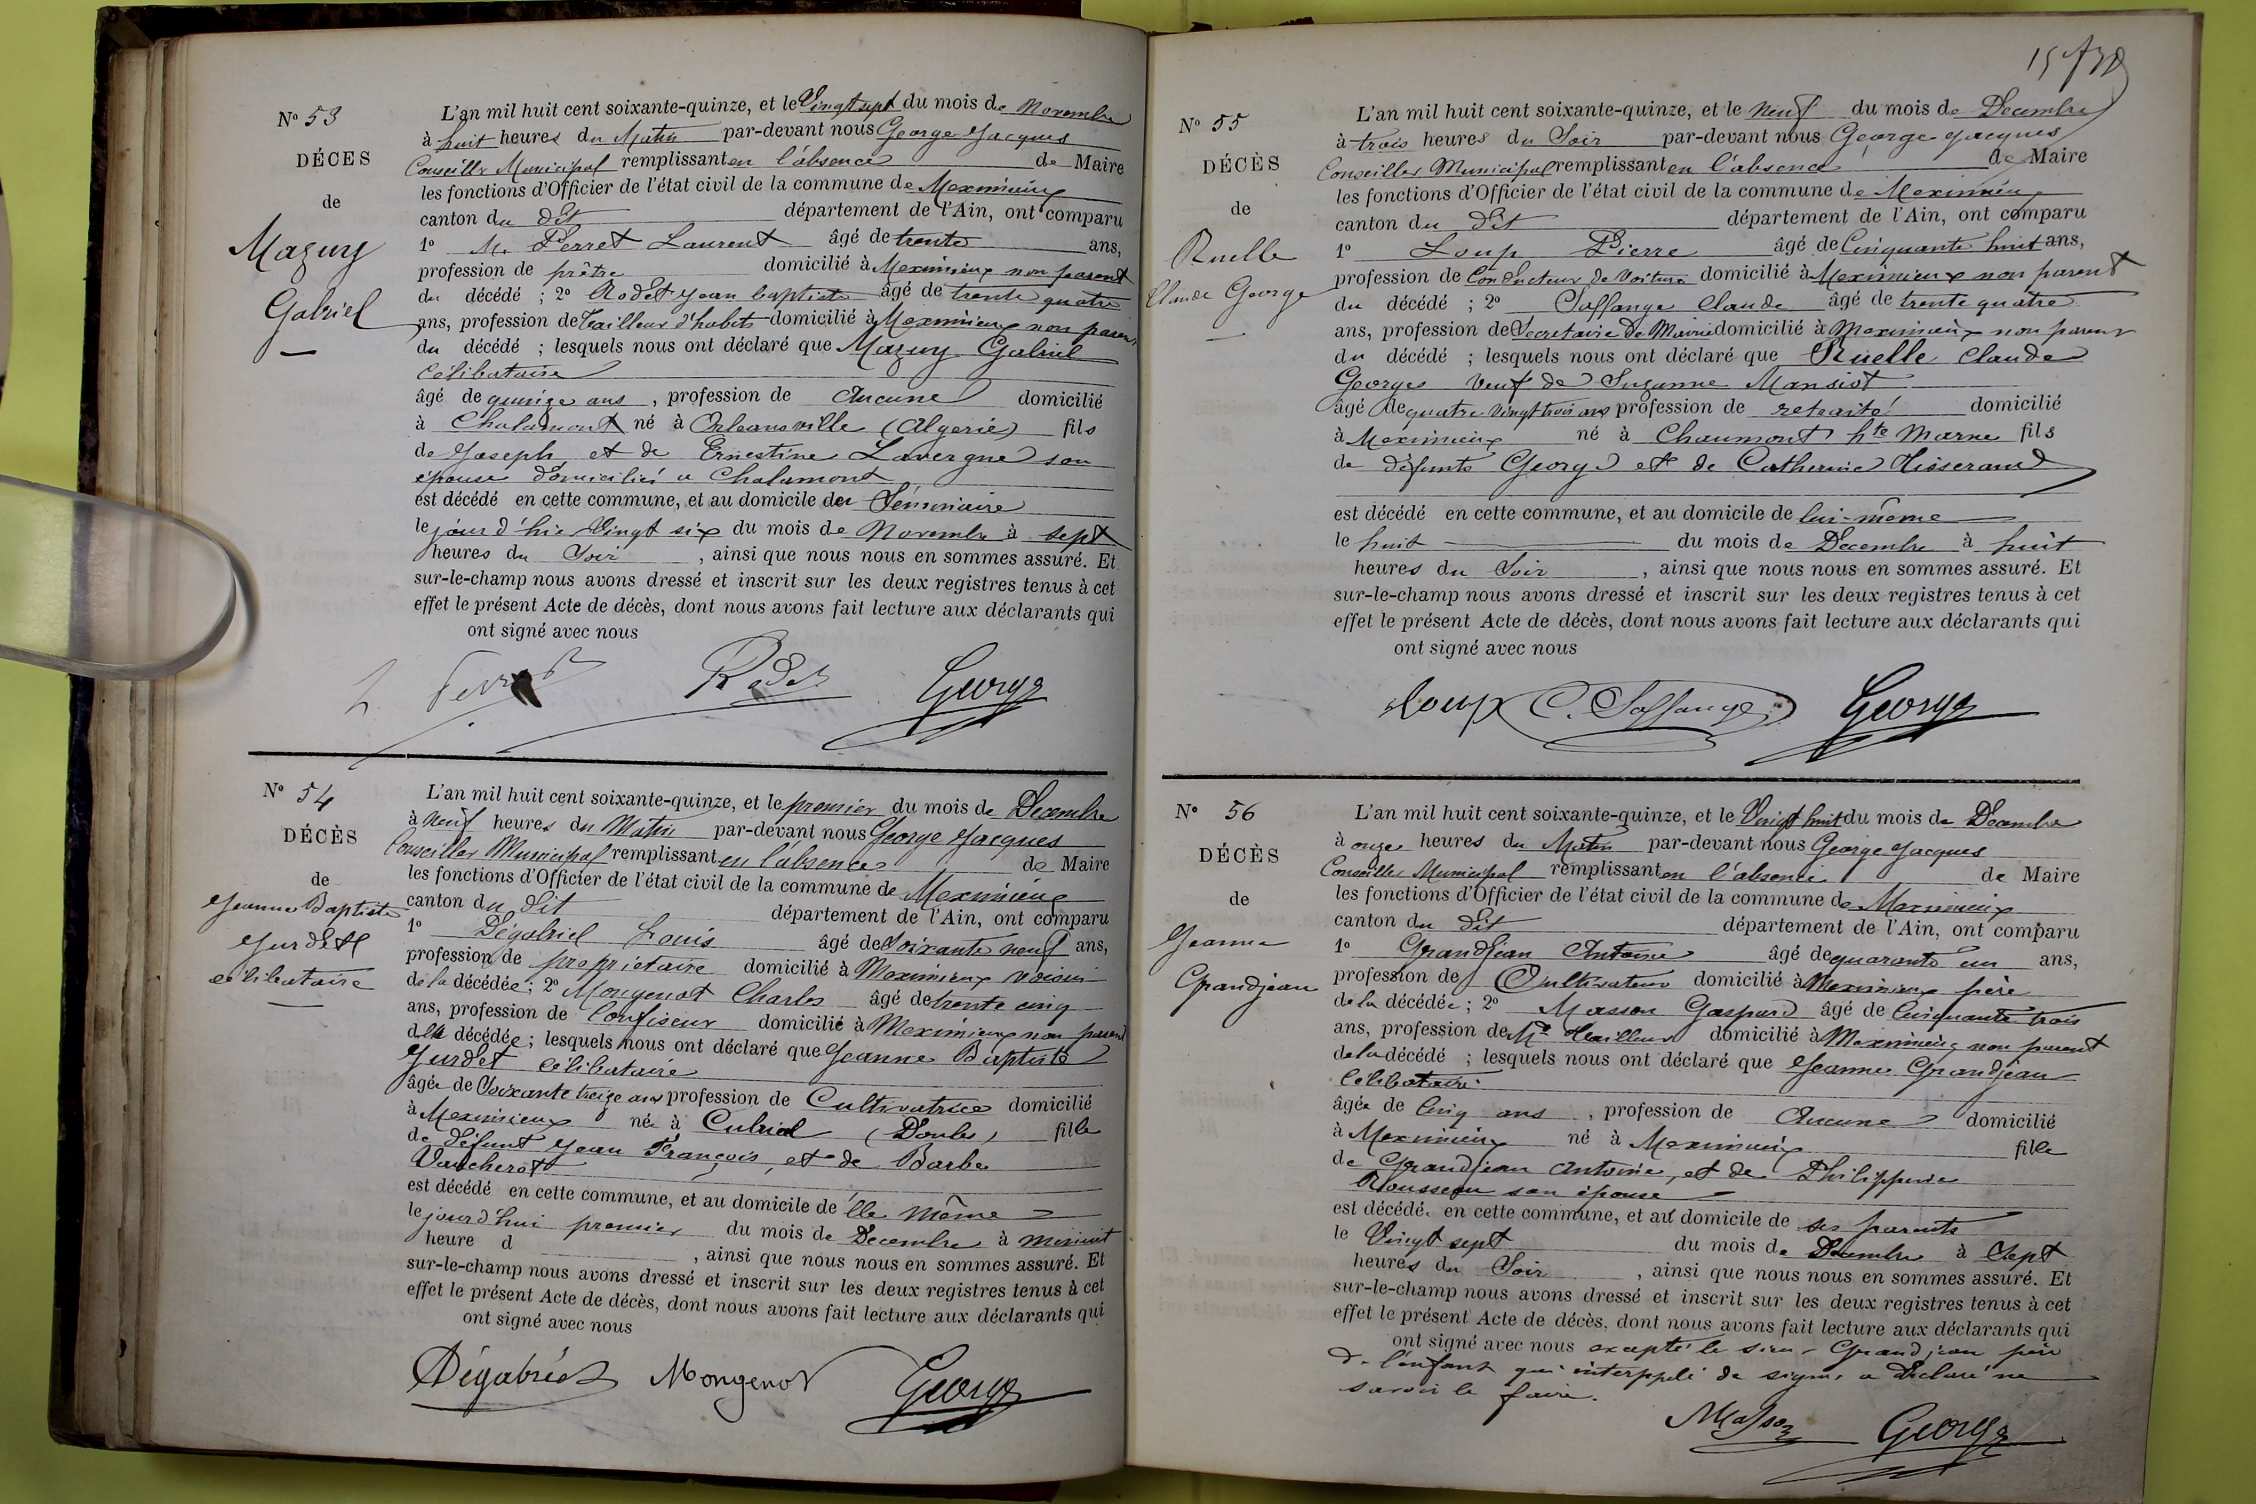 N° 53
DÉCES
de
Mazuy
Gabriel
L'an mil huit cent soixante-quinze, et le Vingt sept du mois de Novembre
à huit heures du Matin par-devant nous George Jacques
Conseiller Municipal remplissant en l'absence de Maire
les fonctions d'Officier de l'état civil de la commune de Meximieux
canton du dit département de l'Ain, ont comparu
1° M. Perret Laurent âgé de trente ans,
profession de prêtre domicilié à Meximieux non parent
du décédé ; 2° Rodet Jean baptiste âgé de trente quatre
ans, profession de tailleur d'habits domicilié à Meximieux non parent
du décédé ; lesquels nous ont déclaré que Mazuy Gabriel
Célibataire
âgé de quinze ans , profession de Aucune domicilié
à Chalamont né à Orleansville (Algerie) fils
de Joseph et de Ernestine Lavergne son
épouse domiciliés a Chalamont
est décédé en cette commune, et au domicile du Séminaire
le jour d'hier Vingt six du mois de Novembre à sept
heures du Soir , ainsi que nous nous en sommes assuré. Et
sur-le-champ nous avons dressé et inscrit sur les deux registres tenus à cet
effet le présent Acte de décès, dont nous avons fait lecture aux déclarants qui
ont signé avec nous
L Perret Rodet George
N° 54
DÉCÈS
de
Jeanne Baptiste
Jurdet
célibataire
L'an mil huit cent soixante-quinze, et le premier du mois de Decembre
à Neuf heures du Matin par-devant nous George Jacques
Conseiller Municipal remplissant en l'absence de Maire
les fonctions d'Officier de l'état civil de la commune de Meximieux
canton du dit département de l'Ain, ont comparu
1° Dégabriel Louis âgé de Soixante neuf ans,
profession de propriétaire domicilié à Meximieux voisin
de la décédée ; 2° Mongenot Charles âgé de trente cinq
ans, profession de Confiseur domicilié à Meximieux non parent
de la décédée ; lesquels nous ont déclaré que Jeanne Baptiste
Jurdet célibataire
âgée de Soixante treize ans profession de Cultivatrice domicilié
à Meximieux née à Cubrial (Doubs) fille
de défunt Jean François, et de Barbe
Vaucherot
est décédé en cette commune, et au domicile de élle même
le jourd'hui premier du mois de Decembre à minuit
heure d , ainsi que nous nous en sommes assuré. Et
sur-le-champ nous avons dressé et inscrit sur les deux registres tenus à cet
effet le présent Acte de décès, dont nous avons fait lecture aux déclarants qui
ont signé avec nous
Dégabriel Mongenot George
N° 55
DÉCÈS
de
Ruelle
Claude George
L'an mil huit cent soixante-quinze, et le neuf du mois de Decembre
à trois heures du Soir par-devant nous George Jacques
Conseiller Municipal remplissant en l'absence de Maire
les fonctions d'Officier de l'état civil de la commune de Meximieux
canton du dit département de l'Ain, ont comparu
1° Loup Pierre âgé de Cinquante huit ans,
profession de Conducteur de Voiture domicilié à Meximieux non parent
du décédé ; 2° Soffange Claude âgé de trente quatre
ans, profession de Secretaire de Mairie domicilié à Meximieux non parent
du décédé ; lesquels nous ont déclaré que Ruelle Claude
Georges Veuf de Suzanne Mansiot
âgé de quatre vingt trois ans profession de retraité domicilié
à Meximieux né à Chaumont hte Marne fils
de défunts George et de Catherine Tisserand
est décédé en cette commune, et au domicile de lui-même
le huit du mois de Decembre à huit
heures du Soir , ainsi que nous nous en sommes assuré. Et
sur-le-champ nous avons dressé et inscrit sur les deux registres tenus à cet
effet le présent Acte de décès, dont nous avons fait lecture aux déclarants qui
ont signé avec nous
Loup C. Soffange George
N° 56
DÉCÈS
de
Jeanne
Grandjean
L'an mil huit cent soixante-quinze, et le Vingt huit du mois de Decembre
à onze heures du Matin par-devant nous George Jacques
Conseiller Municipal remplissant en l'absence de Maire
les fonctions d'Officier de l'état civil de la commune de Meximieux
canton du dit département de l'Ain, ont comparu
1° Grandjean Antoine âgé de quarante un ans,
profession de Cultivateur domicilié à Meximieux père
de la décédée ; 2° Masson Gaspard âgé de Cinquante trois
ans, profession de Md tailleur domicilié à Meximieux non parent
de la décédé ; lesquels nous ont déclaré que Jeanne Grandjean
Celibataire
âgée de Cinq ans , profession de Aucune domicilié
à Meximieux né à Meximieux fille
de Grandjean Antoine, et de Philippine
Rousseau son épouse
est décédé en cette commune, et au domicile de ses parents
le Vingt sept du mois de Decembre à Sept
heures du Soir , ainsi que nous nous en sommes assuré. Et
sur-le-champ nous avons dressé et inscrit sur les deux registres tenus à cet
effet le présent Acte de décès, dont nous avons fait lecture aux déclarants qui
ont signé avec nous excepté le sieur Grandjean père
de l'enfant qui interppelé de signer a Déclaré ne
savoir le faire.
Masson George